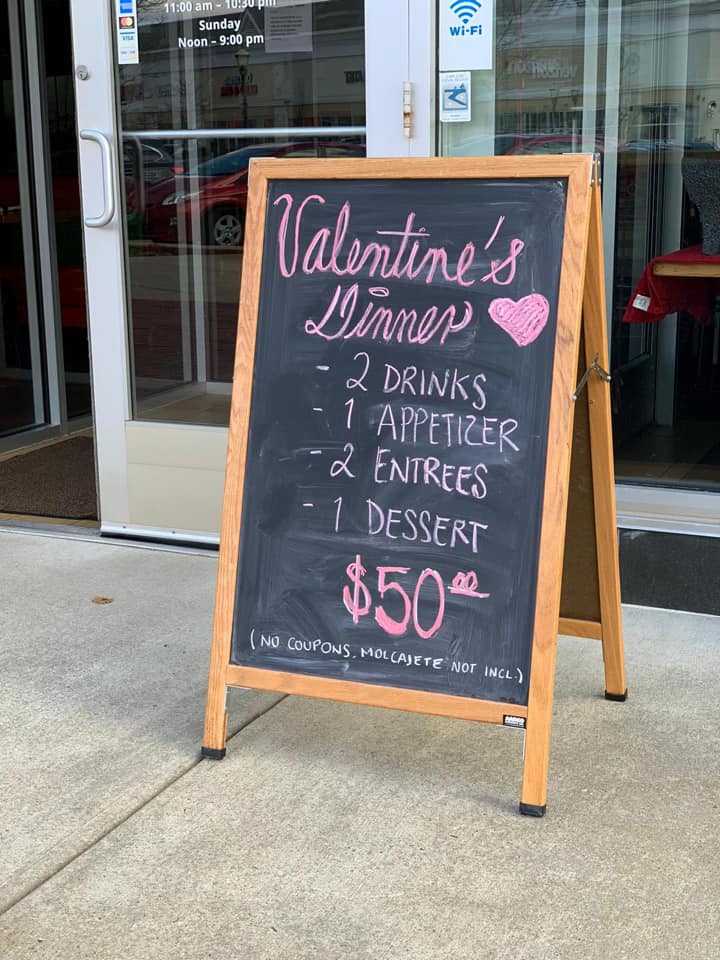 11:00 am – 10:30 pm
Sunday
Noon – 9:00 pm
VISA
Wi-Fi
Valentine's
Dinner
- 2 DRINKS
- 1 APPETIZER
- 2 ENTREES
- 1 DESSERT
$50.00
(NO COUPONS, MOLCAJETE NOT INCL.)